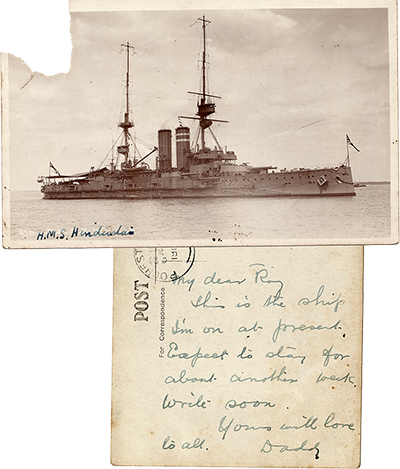 H.M.S. Hindustan
POST
For Correspondence
My dear Roy
This is the ship
I'm on at present.
Expect to stay for
about another week.
Write soon.
Yours with love
to all. Daddy